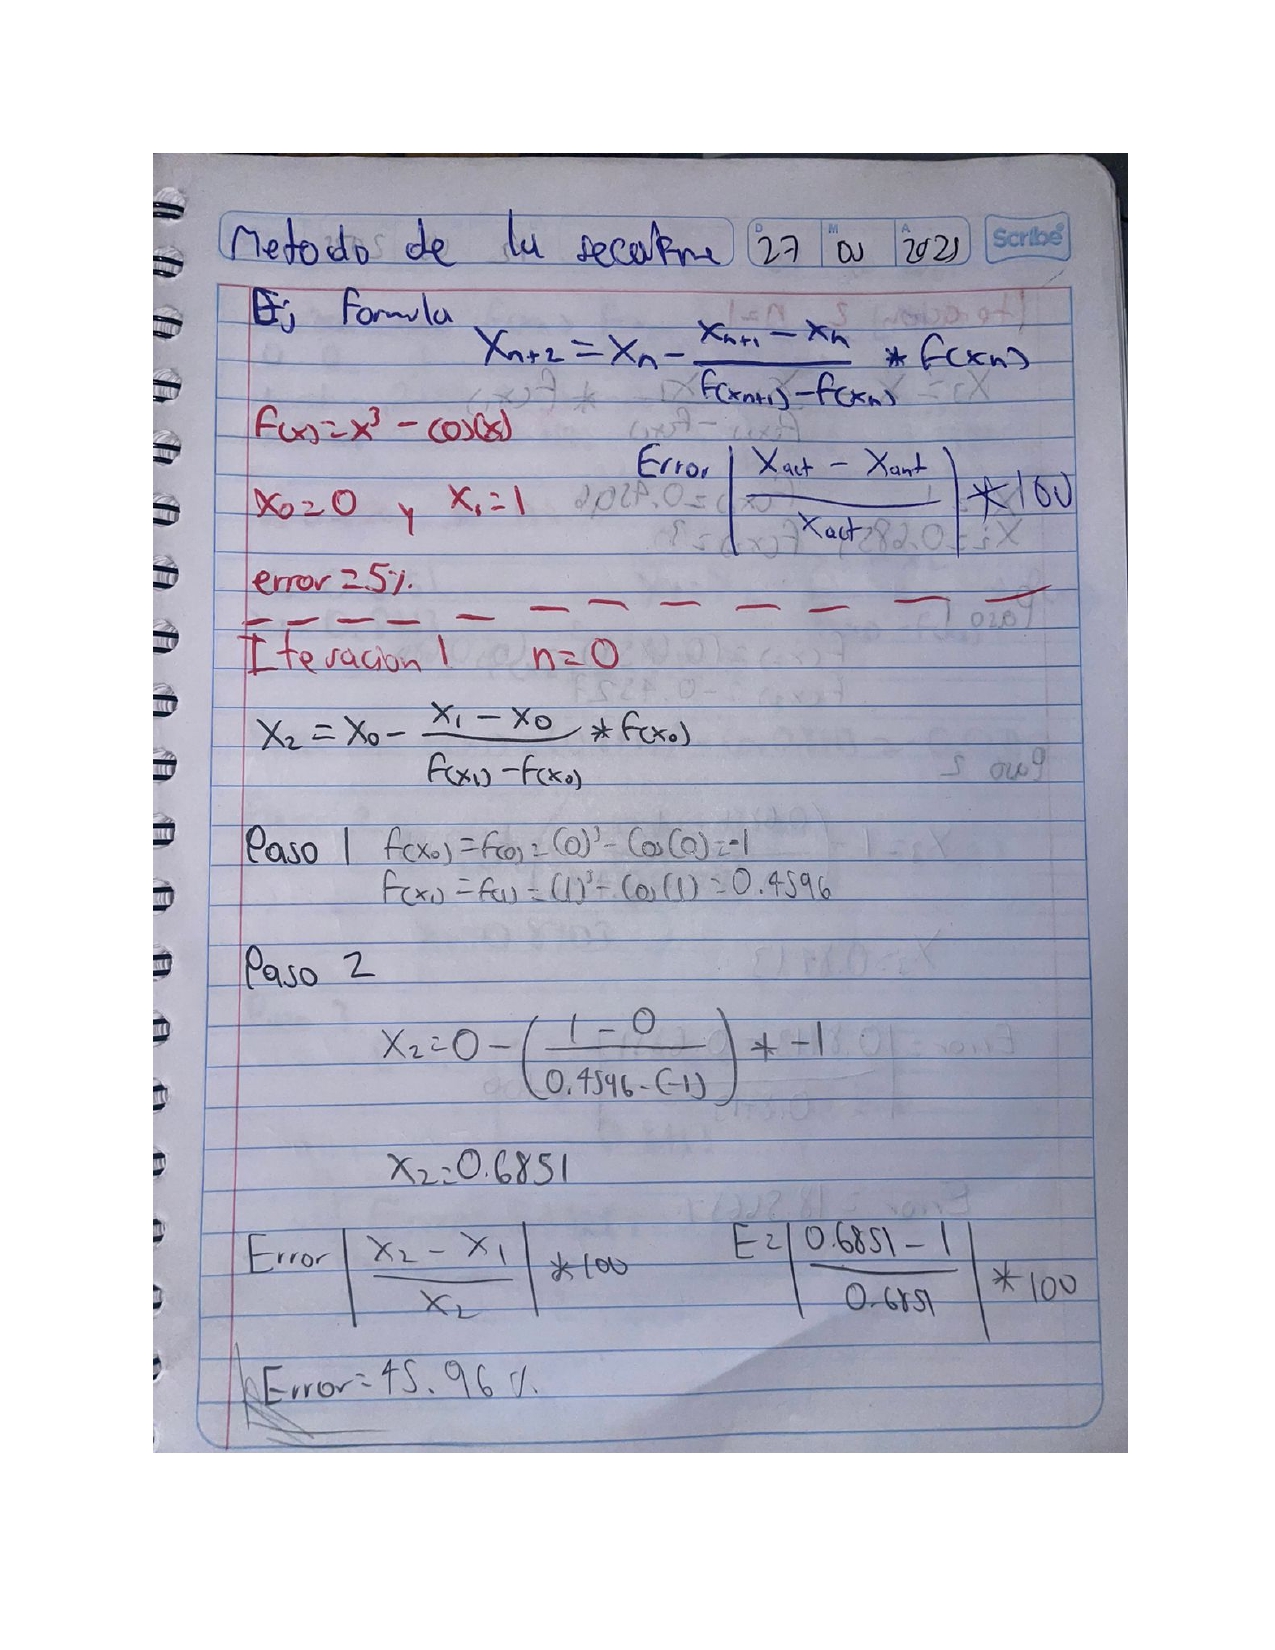 Metodo de la secante D 27 M 01 A 2021 Scribe
Ej Formula
Xn+2 = Xn - (Xn+1 - Xn) / (f(xn+1) - f(xn)) * f(xn)
f(x) = x³ - cos(x)
Error | (Xact - Xant) / Xact | * 100
X0 = 0 y X1 = 1
error = 5%.
Iteracion 1 n = 0
X2 = X0 - (X1 - X0) / (f(x1) - f(x0)) * f(x0)
Paso 1 f(x0) = f(0) = (0)³ - Cos(0) = -1
f(x1) = f(1) = (1)³ - Cos(1) = 0.4596
Paso 2
X2 = 0 - ( (1 - 0) / (0.4596 - (-1)) ) * -1
X2 = 0.6851
Error | (X2 - X1) / X2 | * 100 E = | (0.6851 - 1) / 0.6851 | * 100
Error = 45.96 %.